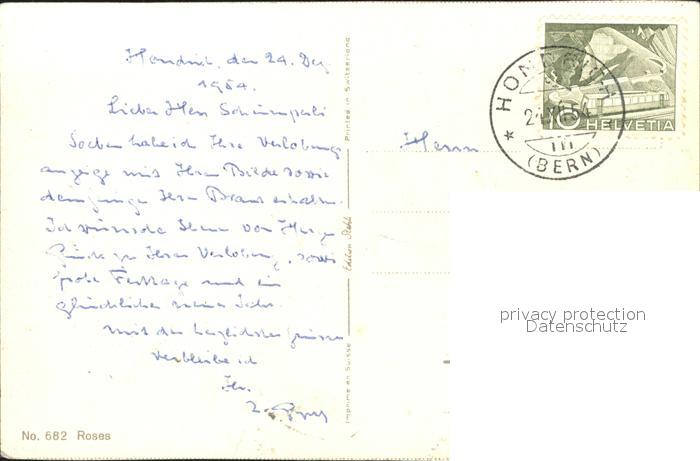 Hondrich, den 24. Dez.
1954.
Lieber Herr
Soeben habe ich Ihre Verlobungs
anzeige mit Ihrem Bilde sowie
demjenigen Ihrer Braut erhalten.
Ich wünsche Ihnen von Herzen
Glück zu Ihrer Verlobung, sowie
frohe Festtage und ein
glückliches neues Jahr.
Mit den herzlichsten Grüssen
verbleibe ich
Ihr
No. 682 Roses
Printed in Switzerland
Edition Stehli
Imprimé en Suisse
Herrn
HONDRICH
24.XII.54
(BERN)
10 HELVETIA
privacy protection
Datenschutz